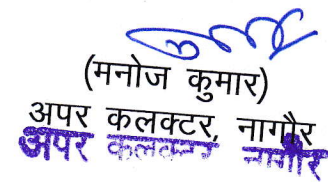 (मनोज कुमार)
अपर कलक्टर, नागौर
अपर कलक्टर नागौर